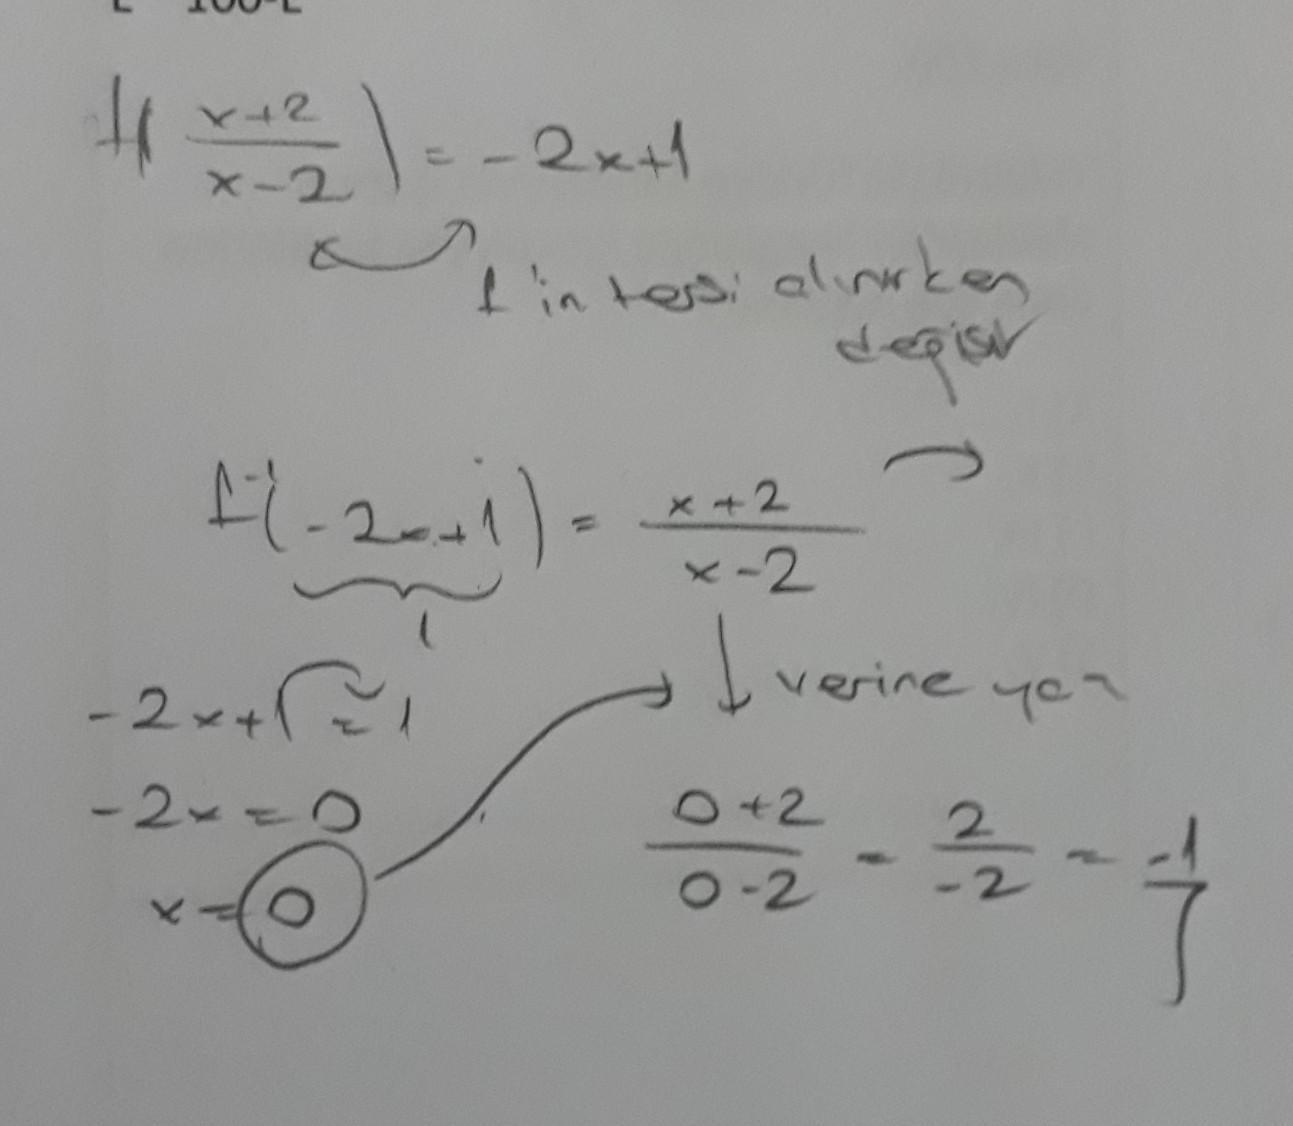 f(x+2/x-2) = -2x+1
f'in tersi alınırken
değişir
f⁻¹(-2x+1) = x+2/x-2
1
-2x+1 = 1
yerine yaz
-2x = 0
0+2/0-2 = 2/-2 = -1
x = 0